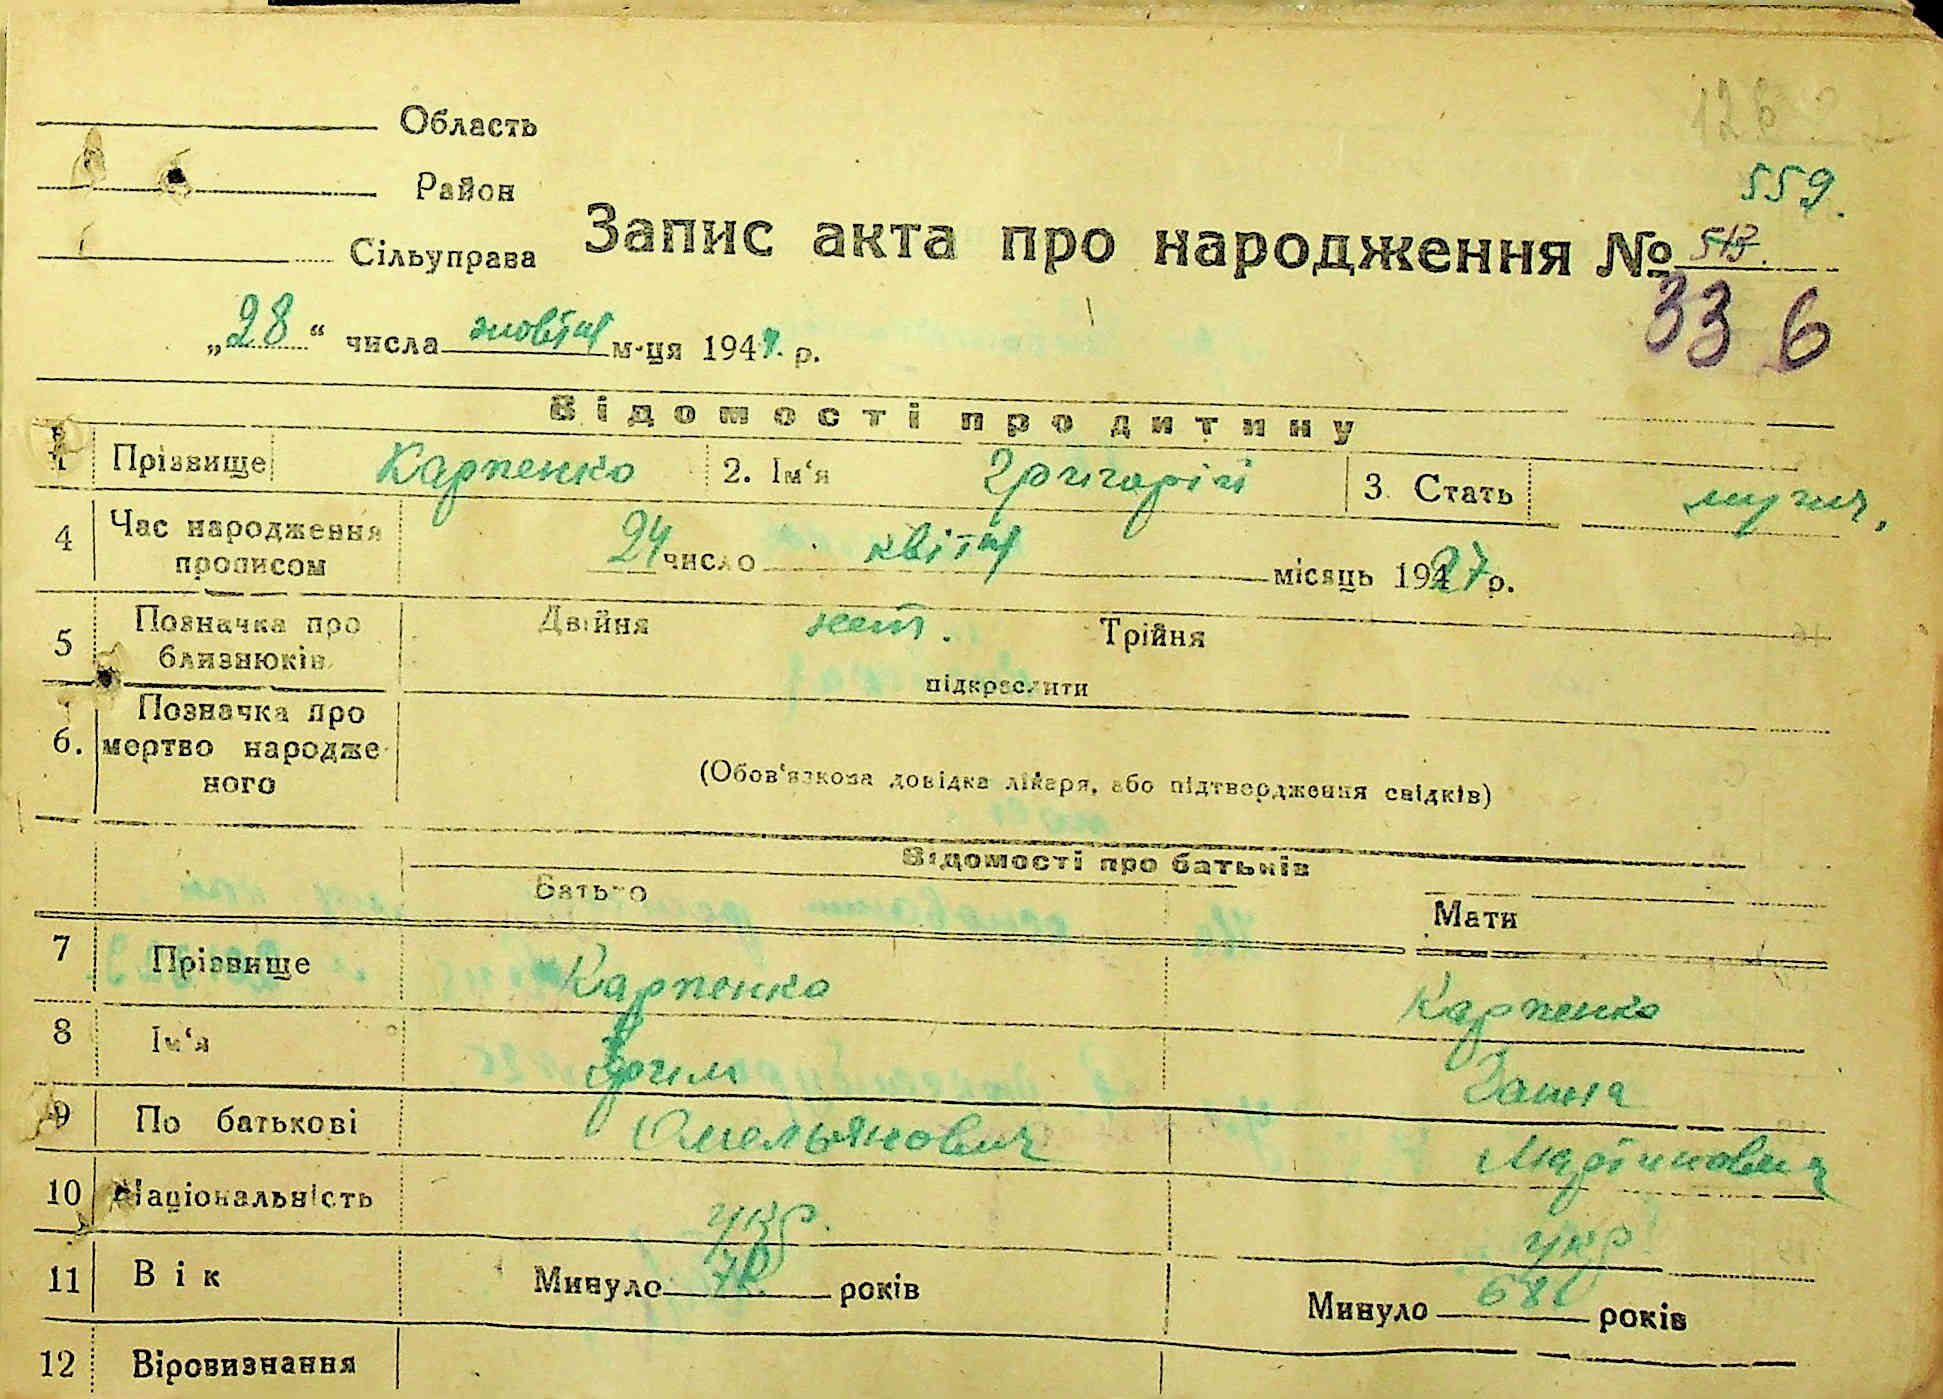 Область
559.
Район
Запис акта про народження № 513.
Сільуправа
336
„28“ числа жовтня м-ця 1947 р.
Відомості про дитину
1 Прізвище Карпенко 2. Ім‘я Григорій 3 Стать мужч.
4 Час народження прописом 24 число квітня місяць 1927 р.
5 Позначка про близнюків Двійня нет. Трійня
підкреслити
6. Позначка про мертво народже ного
(Обов‘язкова довідка лікаря, або підтвердження свідків)
Відомості про батьків
Батько Мати
7 Прізвище Карпенко Карпенко
8 Ім‘я Ганна
9 По батькові Омельянович Мартиновна
10 Національність укр. укр
11 Вік Минуло років Минуло 68 років
12 Віровизнання